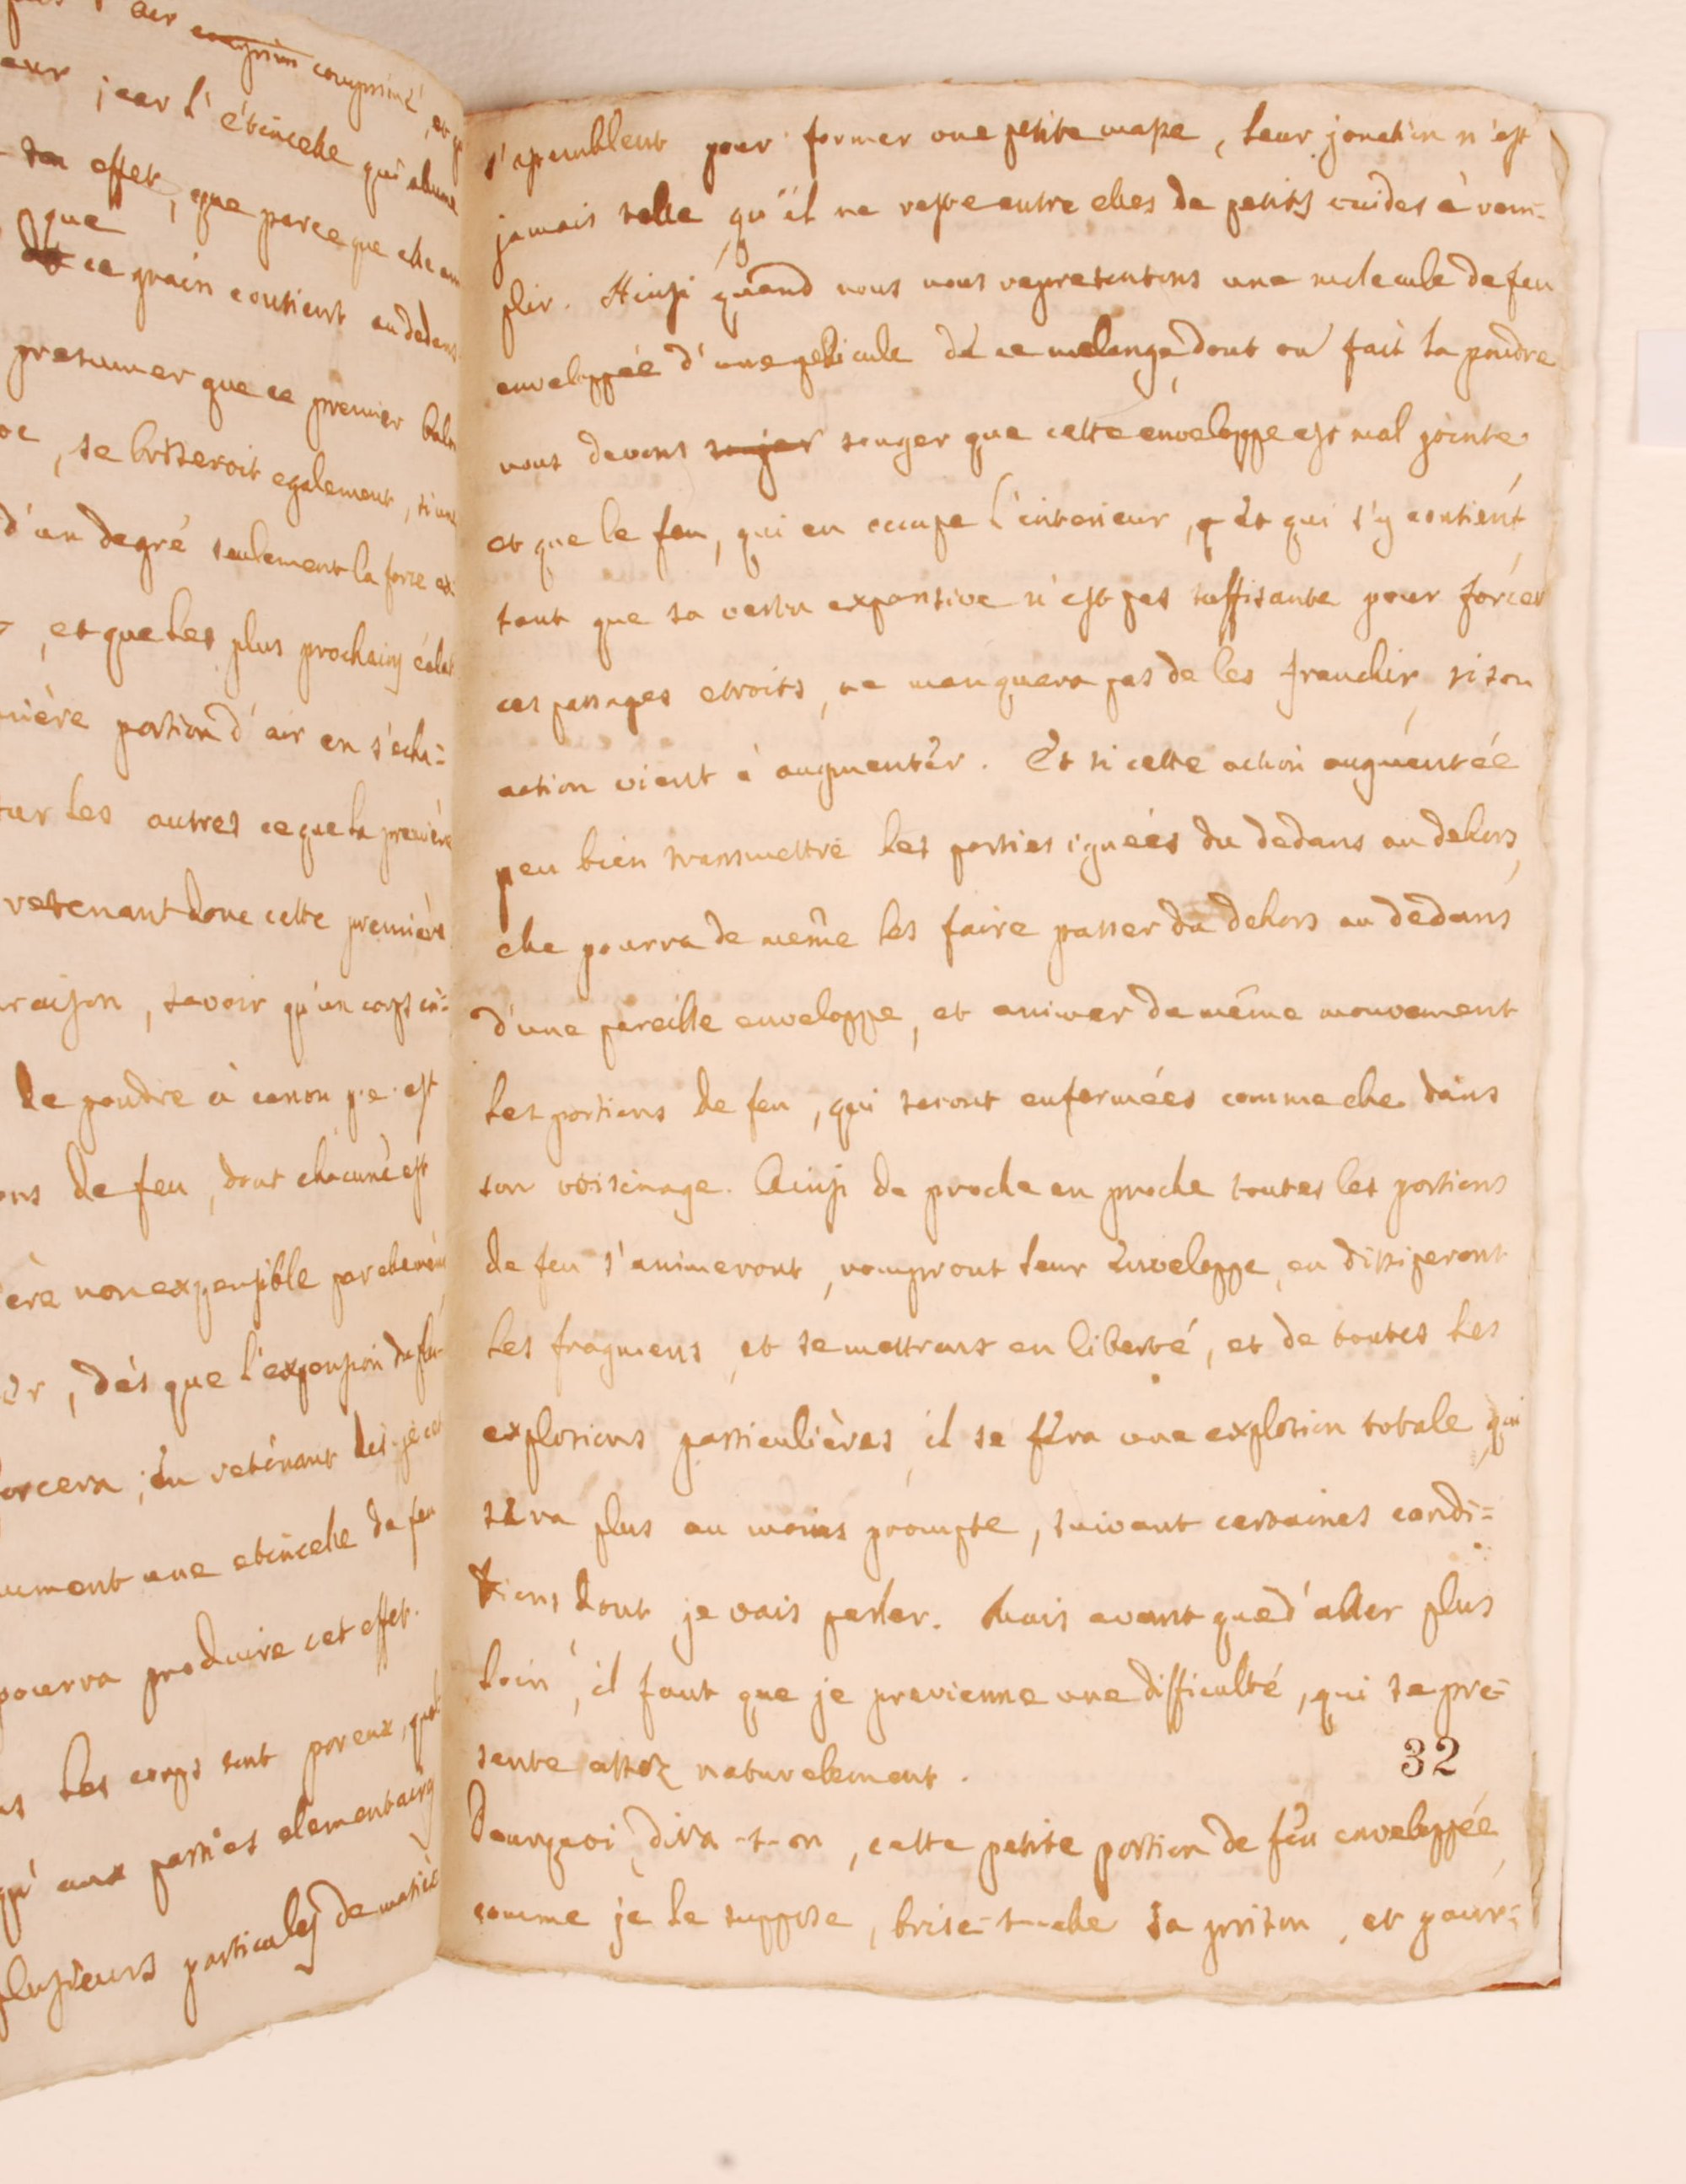 air comprim comprimé, et
car l'étincelle qui alume
son effet, que parce que elle
que
ce grain contient au dedans
presumer que ce premier balon
, se briseroit egalement, si
d'un degré seulement la force
, et que les plus prochains éclat
portion d'air en s'echa=
sur les autres ce que la première
retenant donc cette première
raison, savoir qu'un corps
de poudre à canon p.e. est
de feu, dont chacune est
non expensible par elle même
, dés que l'expension du feu
; en retenant
une etincelle de feu
pourra produire cet effet.
les corps sont poreux,
qu'aux parties elementairs
plusieurs particules de matiè
s'assemblent pour former une petite masse, leur jonction n'est
jamais telle qu'il ne reste entre elles de petits vuides à rem=
plir. Ainsi quand nous nous representons une molecule de feu
enveloppée d'une pellicule de ce melange dont on fait la poudre
nous devons songer songer que cette enveloppe est mal jointe
et que le feu, qui en occupe l'interieur, et qui s'y contient,
tant que sa vertu expansive n'est pas suffisante pour forcer
ces passages etroits, ne manquera pas de les franchir, si son
action vient à augmenter. Et si cette action augmentée
peu bien transmettre les parties ignées du dedans au dehors,
elle pourra de même les faire passer du dehors au dedans
d'une pareille enveloppe, et animer de même mouvement
les portions de feu, qui seront enfermées comme elle dans
son voisinage. Ainsi de proche en proche toutes les portions
de feu s'animeront, rompront leur enveloppe, en dissiperont
les fragmens, et se mettront en liberté, et de toutes les
explosions particulières, il se fera une explosion totale, qui
sera plus ou moins prompte, suivant certaines condi=
tions dont je vais parler. Mais avant que d'aller plus
loin, il faut que je previenne une difficulté, qui se pre=
sente assez naturelement.
32
Pourquoi, dira-t-on, cette petite portion de feu enveloppée
comme je le suppose, brise-t-elle sa prison, et pour=